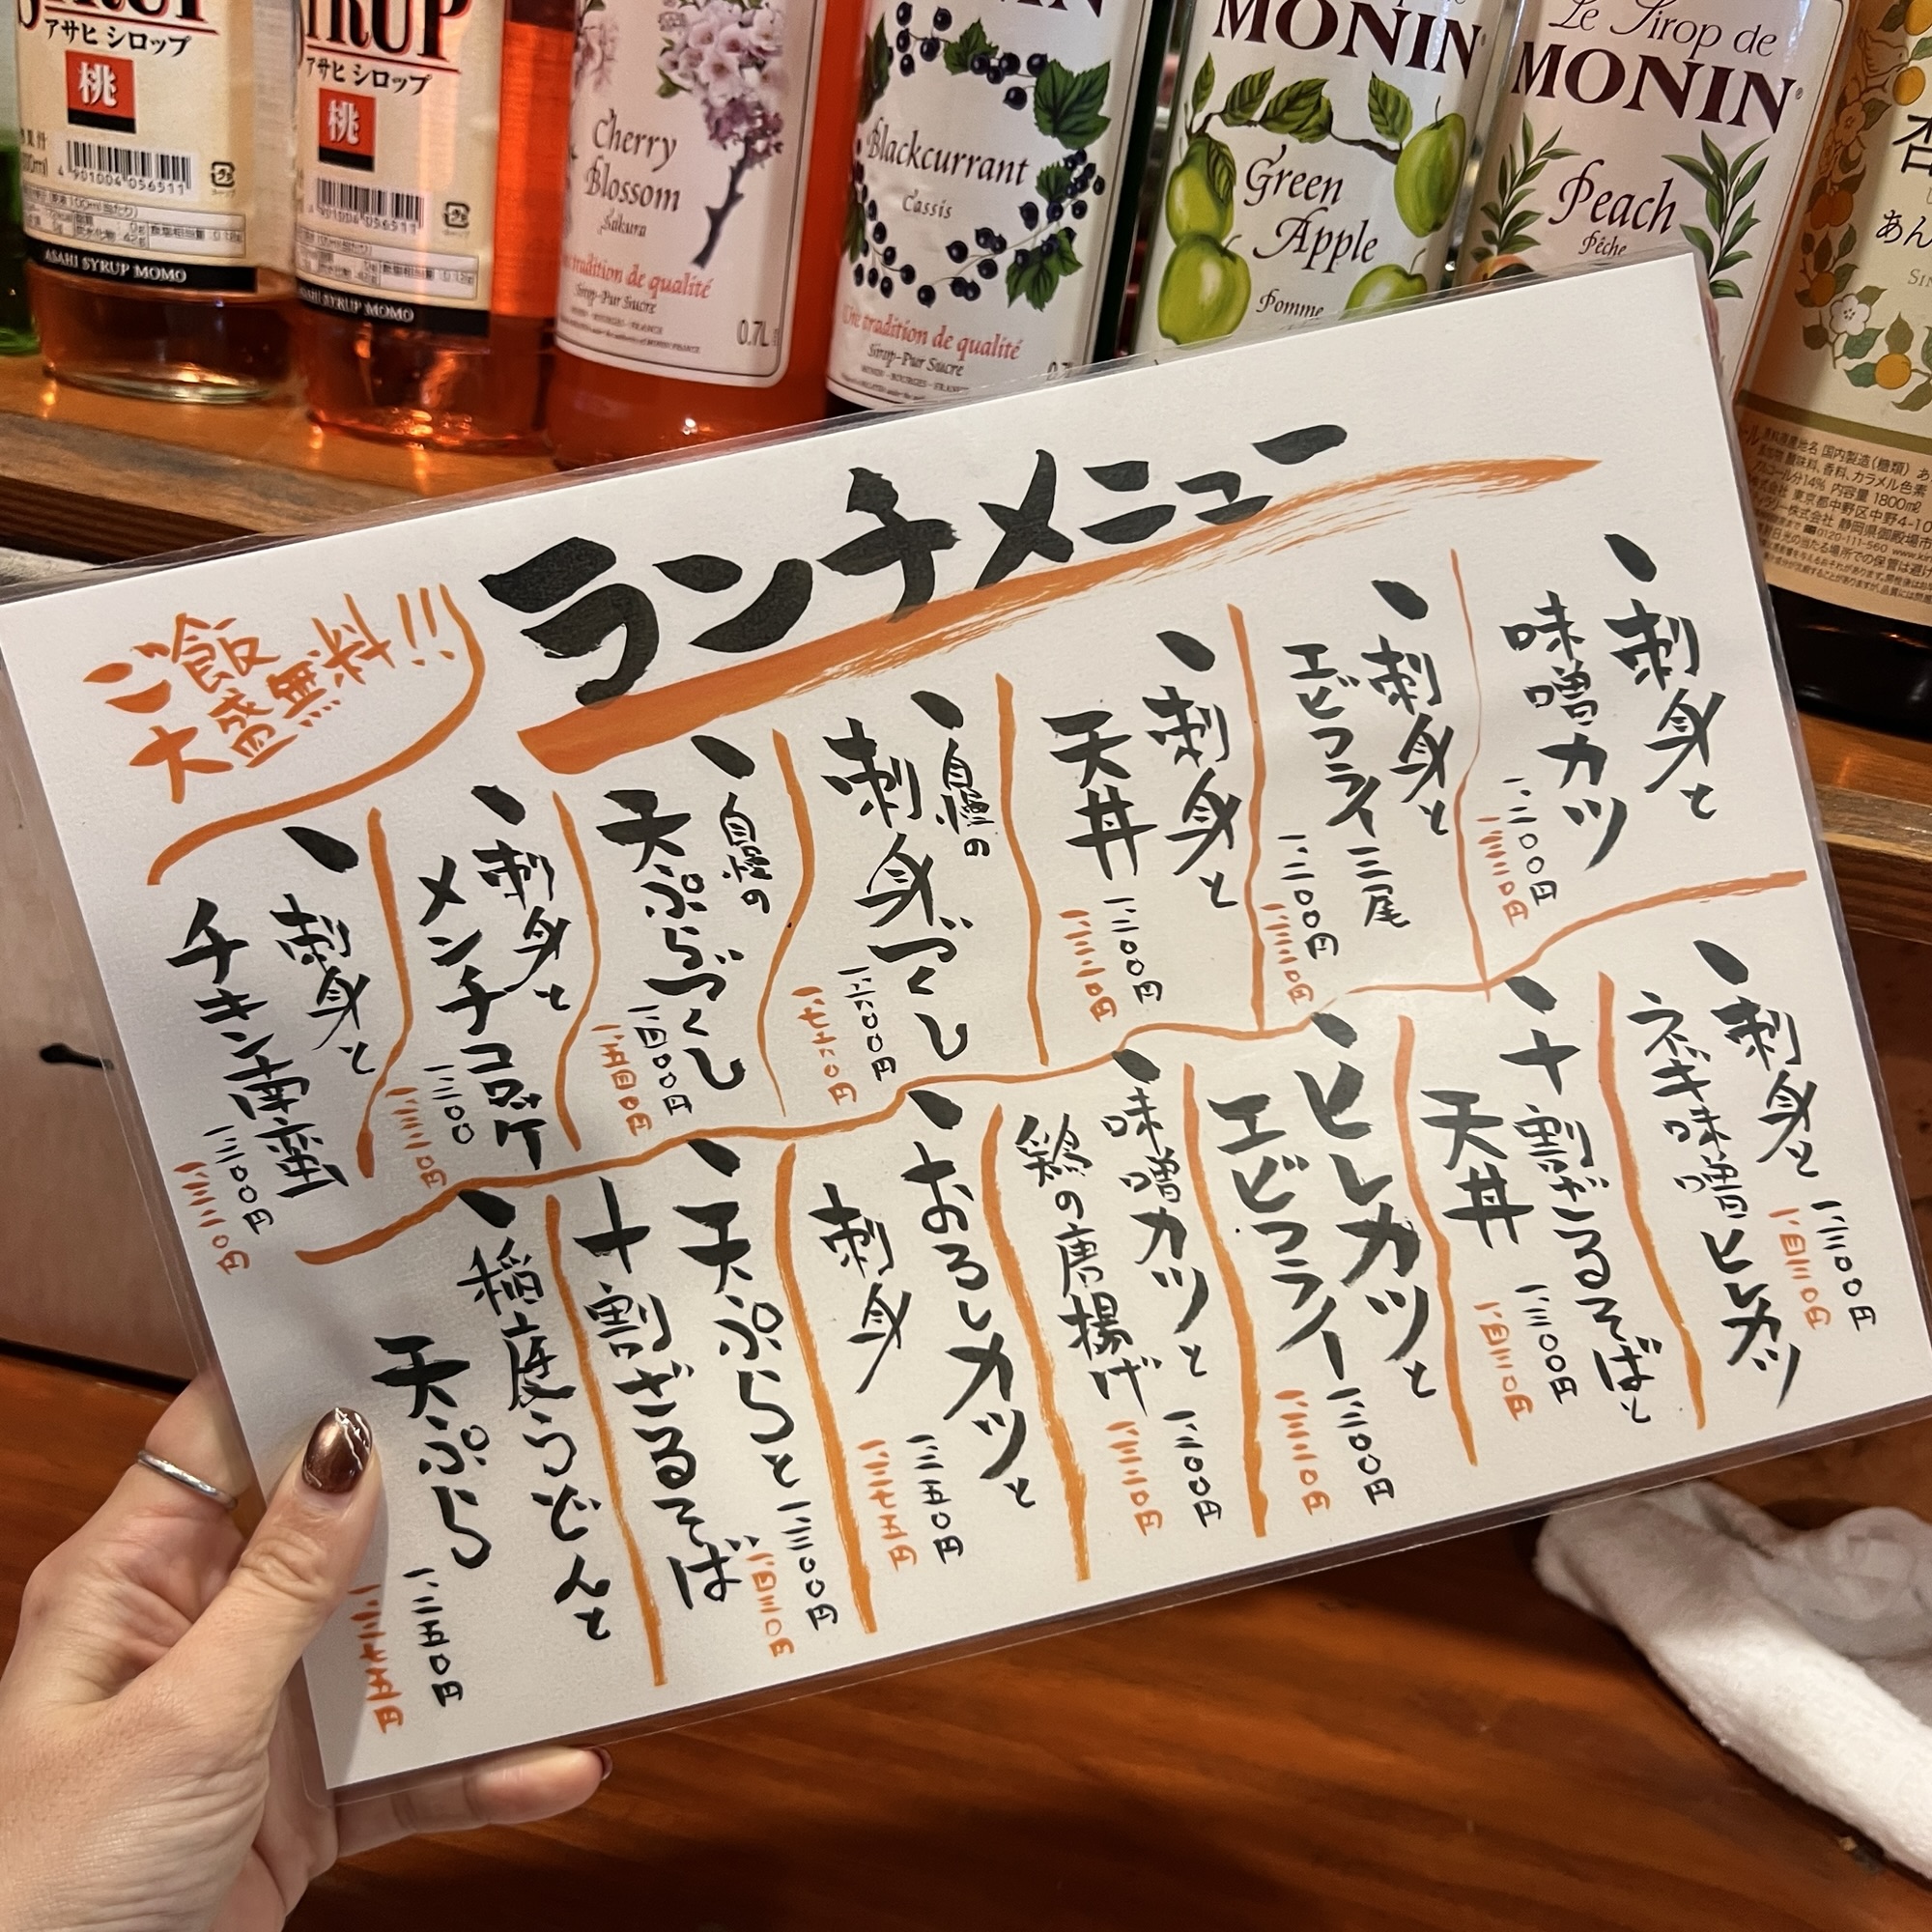 SYRUP
アサヒ シロップ
桃
4 901004 056511
ASAHI SYRUP MOMO
SYRUP
アサヒ シロップ
桃
4 901004 056511
ASAHI SYRUP MOMO
Cherry
Blossom
Sakura
tradition de qualité
Sirop-Pur Sucre
0.7L
Blackcurrant
Cassis
Une tradition de qualité
Sirop-Pur Sucre
MONIN
Green
Apple
Pomme
Le Sirop de
MONIN
Peach
Pêche
杏
あん
ランチメニュー
ご飯
大盛無料!!!
刺身と
味噌カツ
一、二〇〇円
一、三二〇円
刺身と
エビフライ三尾
一、二〇〇円
一、三二〇円
刺身と
天丼
一、二〇〇円
一、三二〇円
自慢の
刺身づくし
一、六〇〇円
一、七六〇円
自慢の
天ぷらづくし
一、四〇〇円
一、五四〇円
刺身と
メンチコロッケ
刺身と
チキン南蛮
刺身と
ネギ味噌ヒレカツ
一、三〇〇円
一、四三〇円
十割ざるそばと
天丼
一、三〇〇円
一、四三〇円
ヒレカツと
エビフライ
一、二〇〇円
一、三二〇円
味噌カツと
鶏の唐揚げ
一、二〇〇円
一、三二〇円
おろしカツと
刺身
一、二五〇円
一、三七五円
天ぷらと
十割ざるそば
一、三〇〇円
一、四三〇円
稲庭うどんと
天ぷら
一、二五〇円
一、三七五円